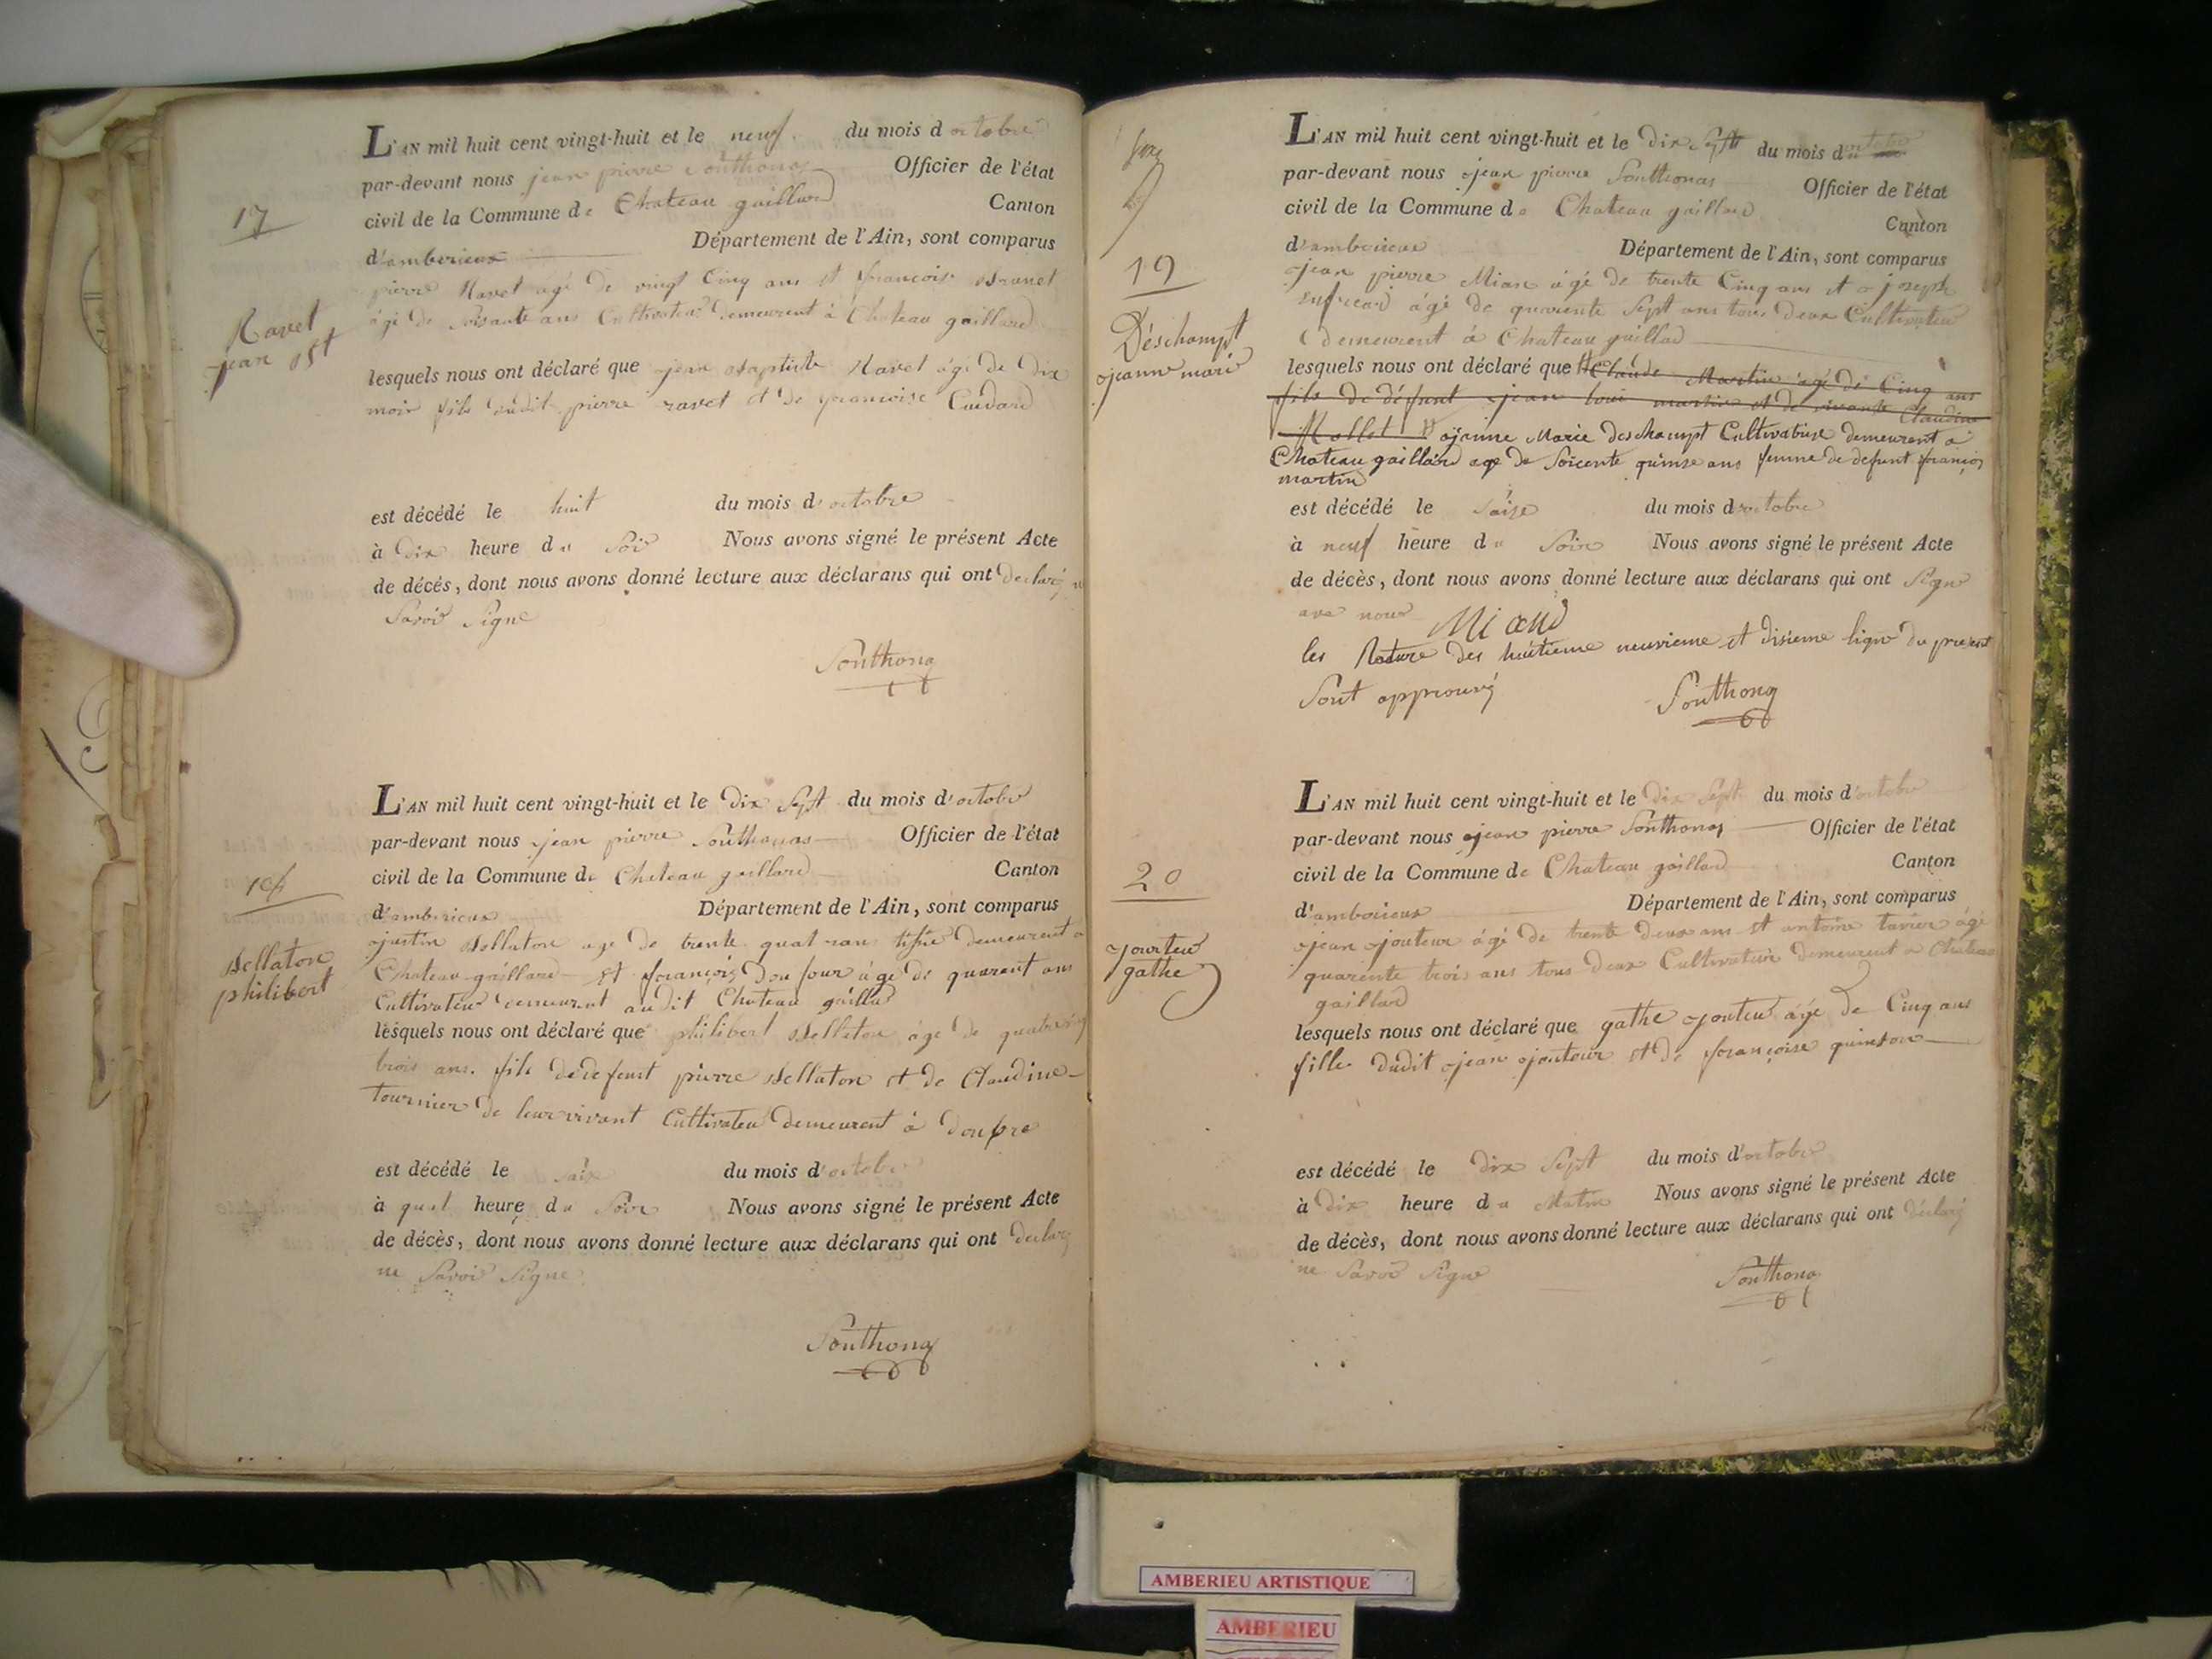 17
Ravet
jean Bst
L'AN mil huit cent vingt-huit et le neuf du mois d octobre
par-devant nous jean pierre Ponthonas Officier de l'état
civil de la Commune de Chateau gaillard Canton
d'amberieux Département de l'Ain, sont comparus
pierre Ravet agé de vingt Cinq ans et francois
agé de soisante ans Cultivateur demeurent à Chateau gaillard
lesquels nous ont déclaré que jean Baptiste Ravet agé de dix
mois fils dudit pierre ravet et de francoise
est décédé le huit du mois d'octobre
à Dix heure du Soir Nous avons signé le présent Acte
de décès, dont nous avons donné lecture aux déclarans qui ont declaré
Savoir Signe
Ponthonas
Bellaton
philibert
L'AN mil huit cent vingt-huit et le Dix Sept du mois d'octobre
par-devant nous jean pierre Ponthonas Officier de l'état
civil de la Commune de Chateau gaillard Canton
d'amberieux Département de l'Ain, sont comparus
justin Bellaton age de trente quat ran demeurent a
Chateau gaillard et françois Dou four âgé de quarent ans
Cultivateur demeurent audit Chateau gailla
lesquels nous ont déclaré que philibert Bellaton âgé de
trois ans. fils de defeust pierre Bellaton et de Claudine
tournier de leur vivant Cultivateu demeurent à
est décédé le du mois d'octobre
à quat heure du Soir Nous avons signé le présent Acte
de décès, dont nous avons donné lecture aux déclarans qui ont declaré
ne Savoir Signe
Ponthonas
19
Déschampt
jeanne marie
L'AN mil huit cent vingt-huit et le Dix Sept du mois du octobre
par-devant nous jean pierre Ponthonas Officier de l'état
civil de la Commune de Chateau gaillard Canton
d'amberieux Département de l'Ain, sont comparus
jean pierre agé de trente Cinq ans et joseph
âgé de quarente Sept ans tous deux Cultivateur
demeurent à Chateau gaillad
lesquels nous ont déclaré que Claude Martin agé de Cinq ans
fils de défunt jean martin et de vivante Claudine
Mollet jeanne Marie deschampt Cultivatrise demeurent a
Chateau gaillard age de Soicente quinse ans femme de defunt françois
martin
est décédé le Saise du mois d'octobre
à neuf heure du Soir Nous avons signé le présent Acte
de décès, dont nous avons donné lecture aux déclarans qui ont Signe
ave nous
les Rature des huitieme neuvieme et disieme ligne du present
Sont approuvé Ponthonas
20
jouteu
gathe
L'AN mil huit cent vingt-huit et le dix Sept du mois d'octobre
par-devant nous jean pierre Ponthonas Officier de l'état
civil de la Commune de Chateau gaillard Canton
d'amberieux Département de l'Ain, sont comparus
jean jouteur âgé de trente deux ans et antoine tavier agé
quarente trois ans tous deux Cultivateur demeurent a Chateau
gaillard
lesquels nous ont déclaré que gathe jouteu âgé de Cinq ans
fille dudit jean jouteur et de françoise quinson
est décédé le dix Sept du mois d'octobre
à Dix heure du Matin Nous avons signé le présent Acte
de décès, dont nous avons donné lecture aux déclarans qui ont déclaré
ne Savoir Signe
Ponthonas
AMBERIEU ARTISTIQUE
AMBERIEU